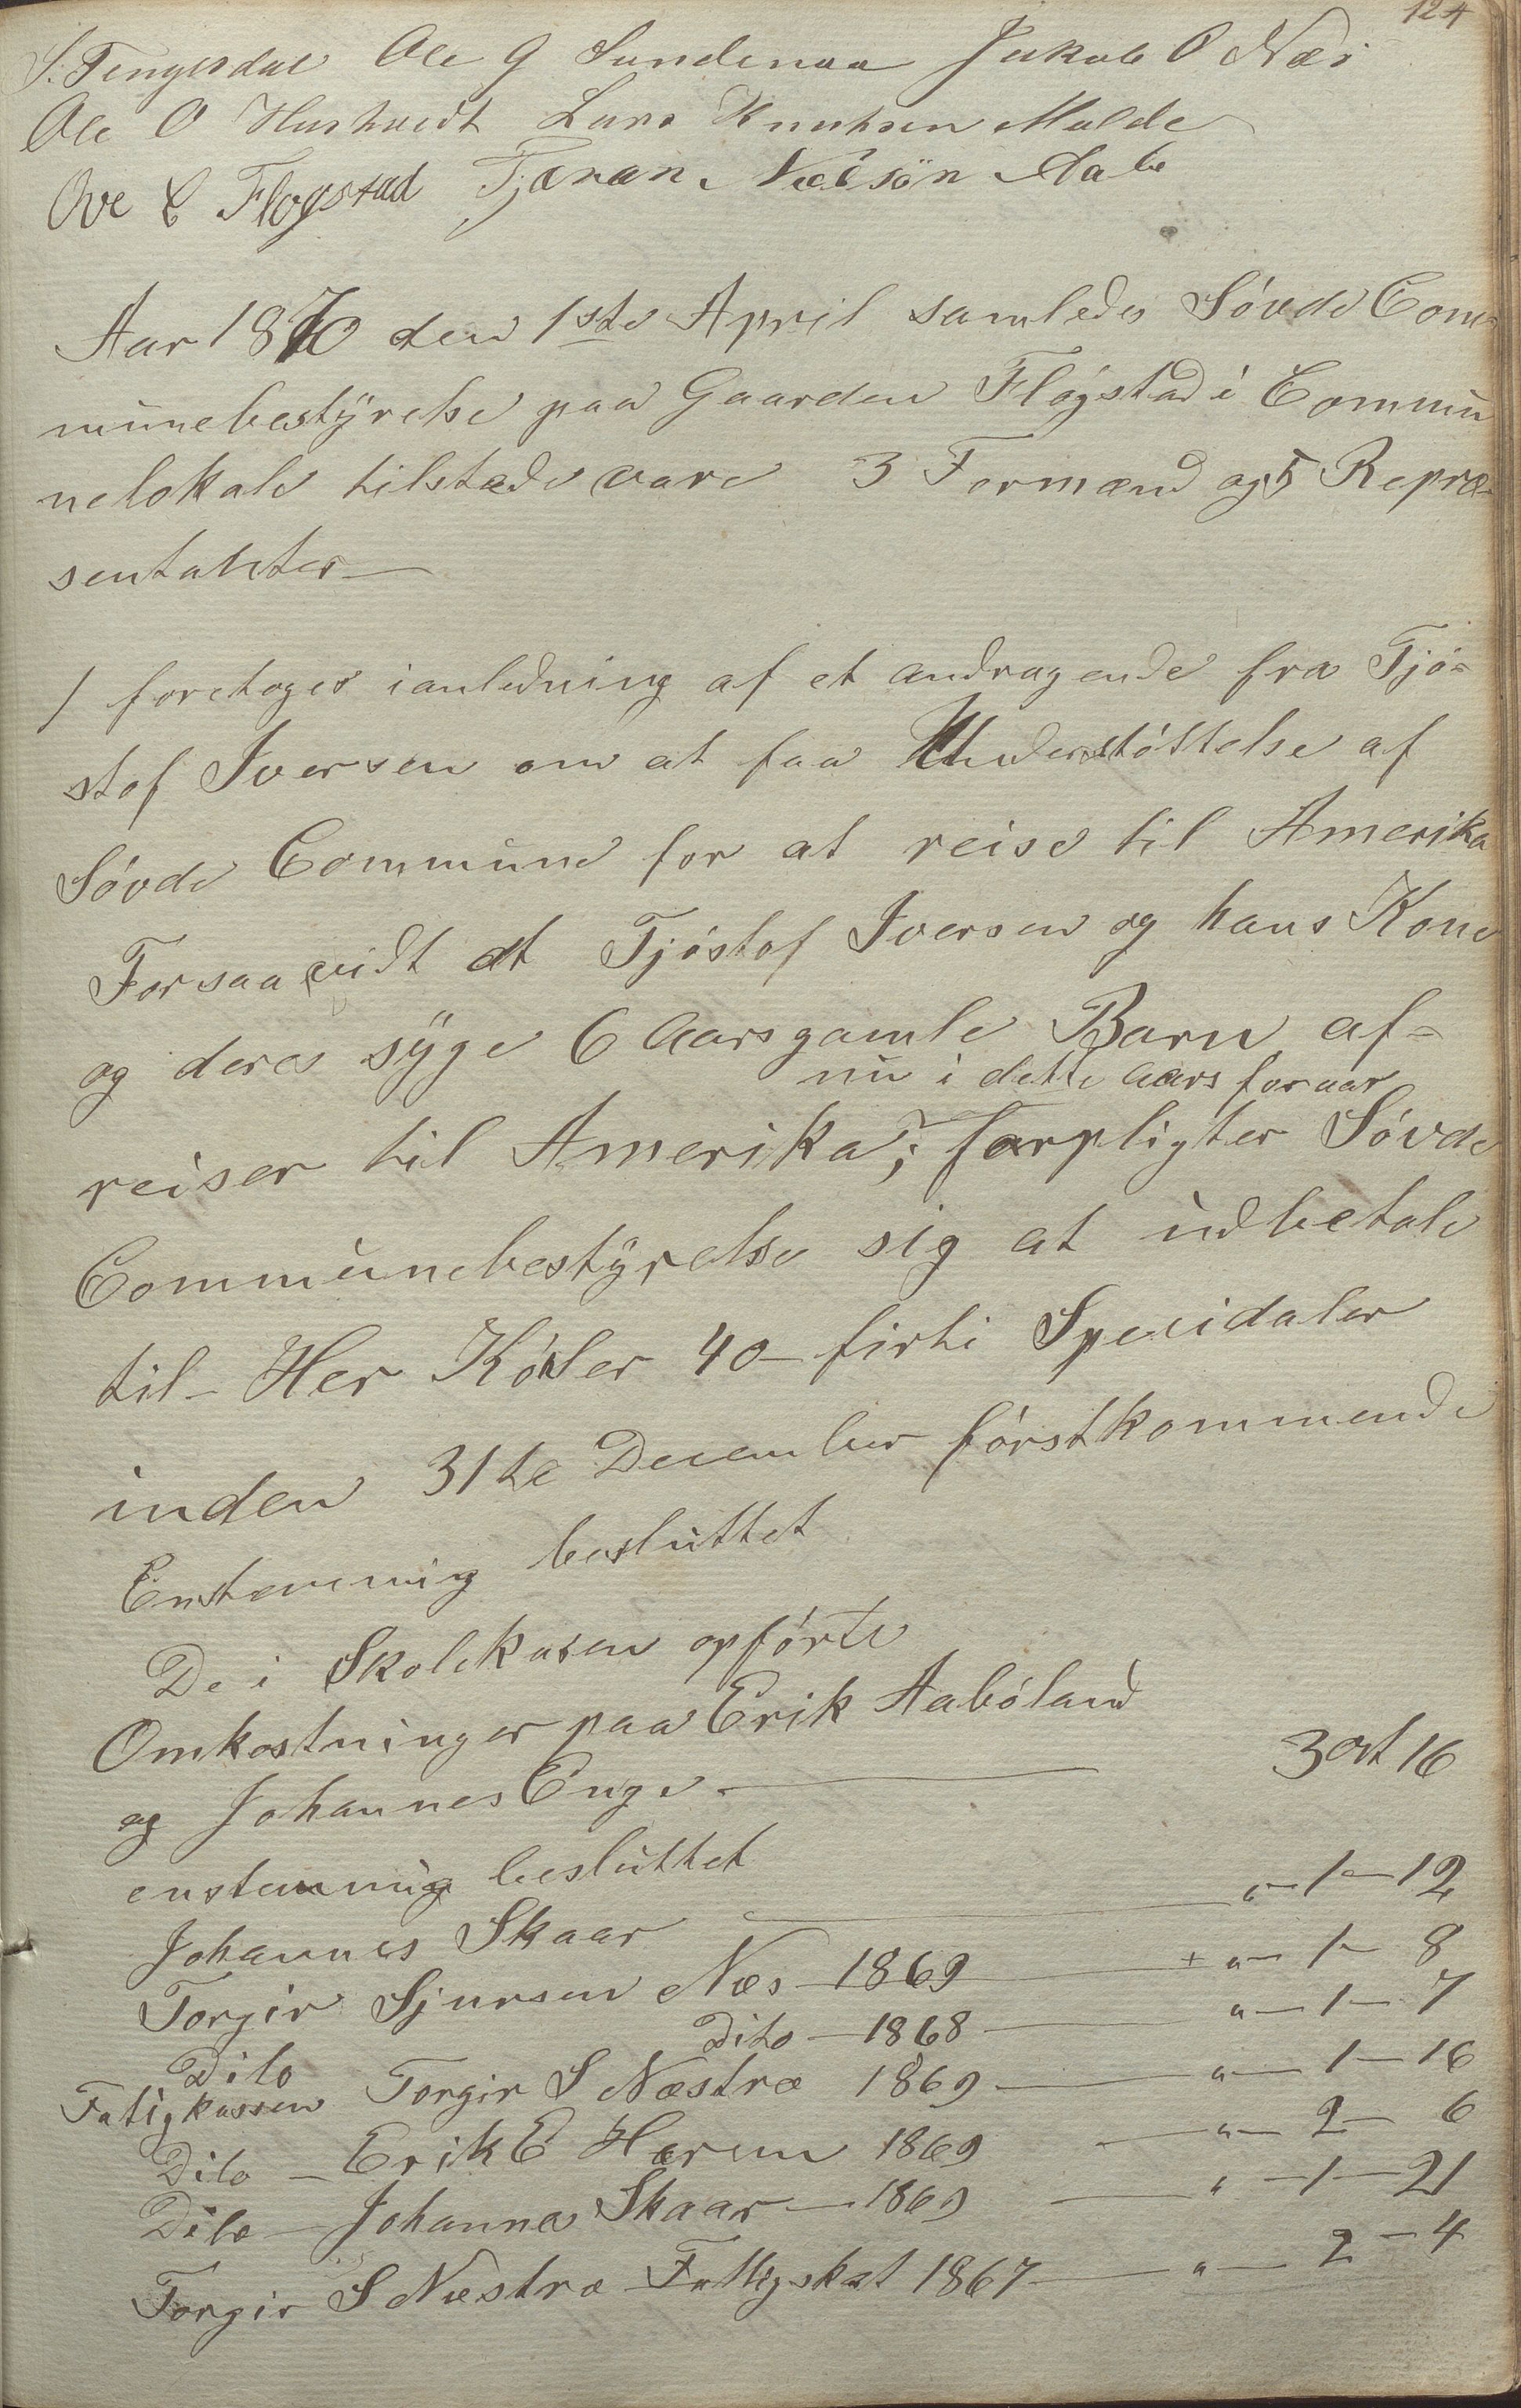 124
S. Tengesdal Ole G Sundenaa Jakob O Næs
Ole O Hushvedt Lars Knutsen Malde
Ove E Flogstad Tjæran. Nælsön Aabø
Aar 1870 den 1ste April samledes Søvde Com=
munebestyrelse paa Gaarden Fløgstad i Commu
nelokale tilstæde vare 3 Formænd og 5 Repræ=
sentanter—
1 foretoges ianledning af et andragende fra Tjø=
stof Iversen om at faa Understøttelse af
Søvde Commune for at reise til Amerika
Forsaavidt at Tjøstof Iversen og hans Kone
og deres syge 6 Aarsgamle Barn af=
nu i dette Aars foraar
reiser til Amerika; forpligter Søvde
Communebestyrelse sig at udbetale
til- Her Køhler 40- firti Specidaler
inden 31te December førstkommende
Enstemmig besluttet
De i Skolekasen opførte
Omkostninger paa Erik Aabøland
og Johannes Enge.— 3 ort 16
enstemmig besluttet
Johannes Skaar — " — 1 — 12
Torgir Sjursen Næs — 1869 — + " — 1 — 8
Dito Dito — 1868 — " — 1 — 7
Fatigkassen Torgir S Næstra 1869 — " — 1 — 16
Dito — Erik E Hærem 1869 — " — 2 — 6
Dito — Johannes Skaar — 1869 — " — 1 — 21
Torgir S Næstra Fattigskat 1867 — " — 2 — 4